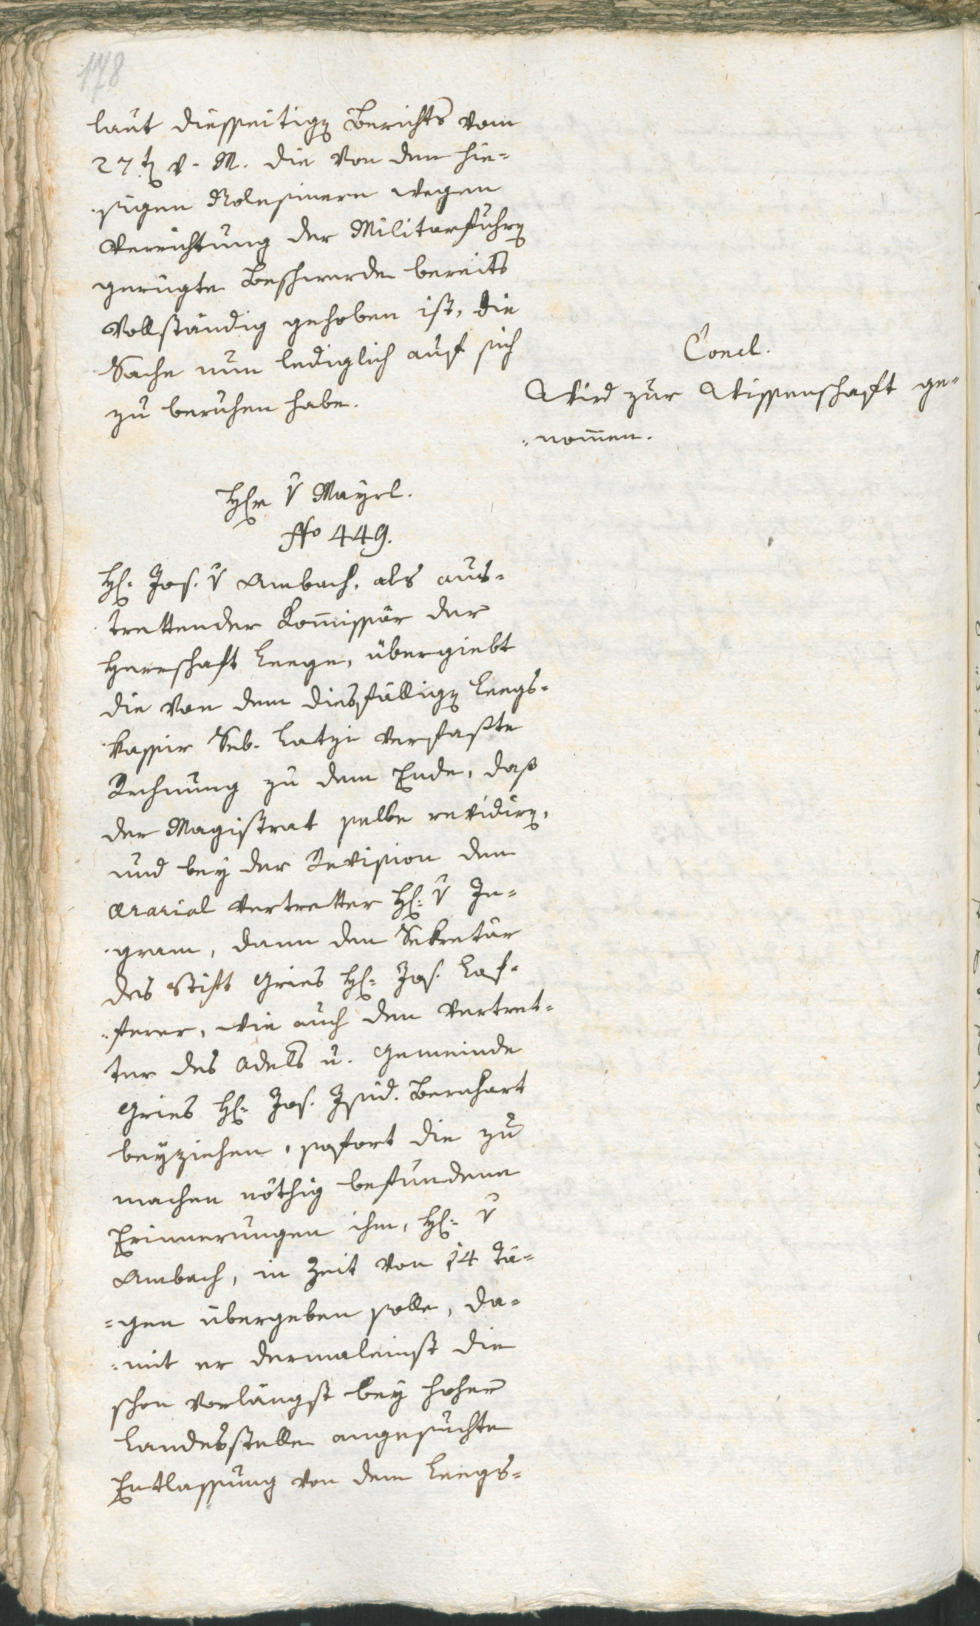 178
laut diesseitigen Berichts vom
27ten v. M. die von den hie=
sigen Rolesinern wegen
Verrichtung der Militarfuhren
gerügte Beschwerde bereits
vollständig gehoben ist, die
Sache nun lediglich auf sich
zu beruhen habe.
Concl.
Wird zur Wissenschaft ge=
=nommen.
Herr v Mayrl.
No 449.
H: Jos. v Ambach, als aus=
trettender Kommissär der
Herrschaft Leege, übergiebt
die von dem diesfälligen Leegs=
kassir Seb. Latzin verfaßte
Rechnung zu dem Ende, daß
der Magistrat selbe revidiren,
und bey der Revision den
Ararial Vertretter H: v In=
gram, dann den Sekretär
des Stift Gries H: Jos. Laf=
=ferer, wie auch den Vertret=
ter des Adels u. Gemeinde
Gries H: Jos. Isid. Bernhart
beyziehen, sofort die zu
machen nöthig befundene
Erinnerungen ihm, H: v
Ambach, in Zeit von 14 Tä=
=gen übergeben solle, da=
=mit er dermaleinst die
schon vorlängst bey hoher
Landesstelle angesuchte
Entlassung von dem Leegs=